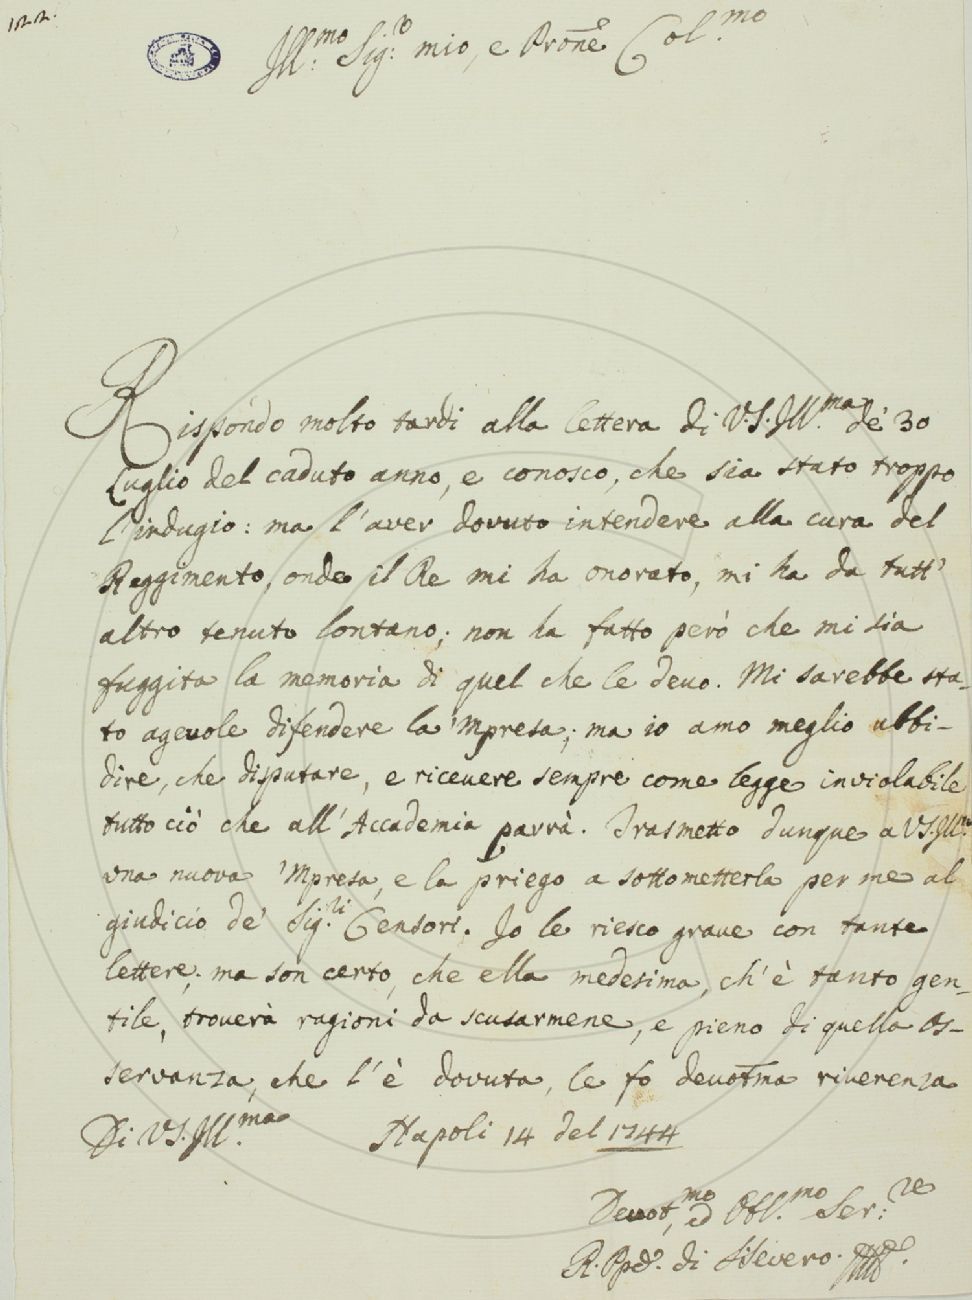 122.
Ill.mo Sig.re mio, e Prone Col.mo
Rispondo molto tardi alla lettera di V.S.Ill.ma de' 30
Luglio del caduto anno, e conosco, che sia stato troppo
l'indugio: ma l'aver dovuto intendere alla cura del
Reggimento, onde il Re mi ha onorato, mi ha da tutt'
altro tenuto lontano; non ha fatto però che mi sia
fuggita la memoria di quel che le devo. Mi sarebbe sta-
to agevole difendere la 'Mpresa; ma io amo meglio ubbi-
dire, che disputare, e ricevere sempre come legge inviolabile
tutto ciò che all'Accademia parrà. Trasmetto dunque a VS.Ill.ma
una nuova 'Mpresa, e la priego a sottometterla per me al
giudicio de' Sig.ri Censori. Io le riesco grave con tante
lettere; ma son certo, che ella medesima, ch'è tanto gen-
tile, troverà ragioni da scusarmene, e pieno di quella os-
servanza, che l'è dovuta, le fo devotma riverenza
Di VS.Ill.ma Napoli 14 del 1744
Devot.mo ed Obl.mo Ser.re
R. Ppe. di S.Severo.